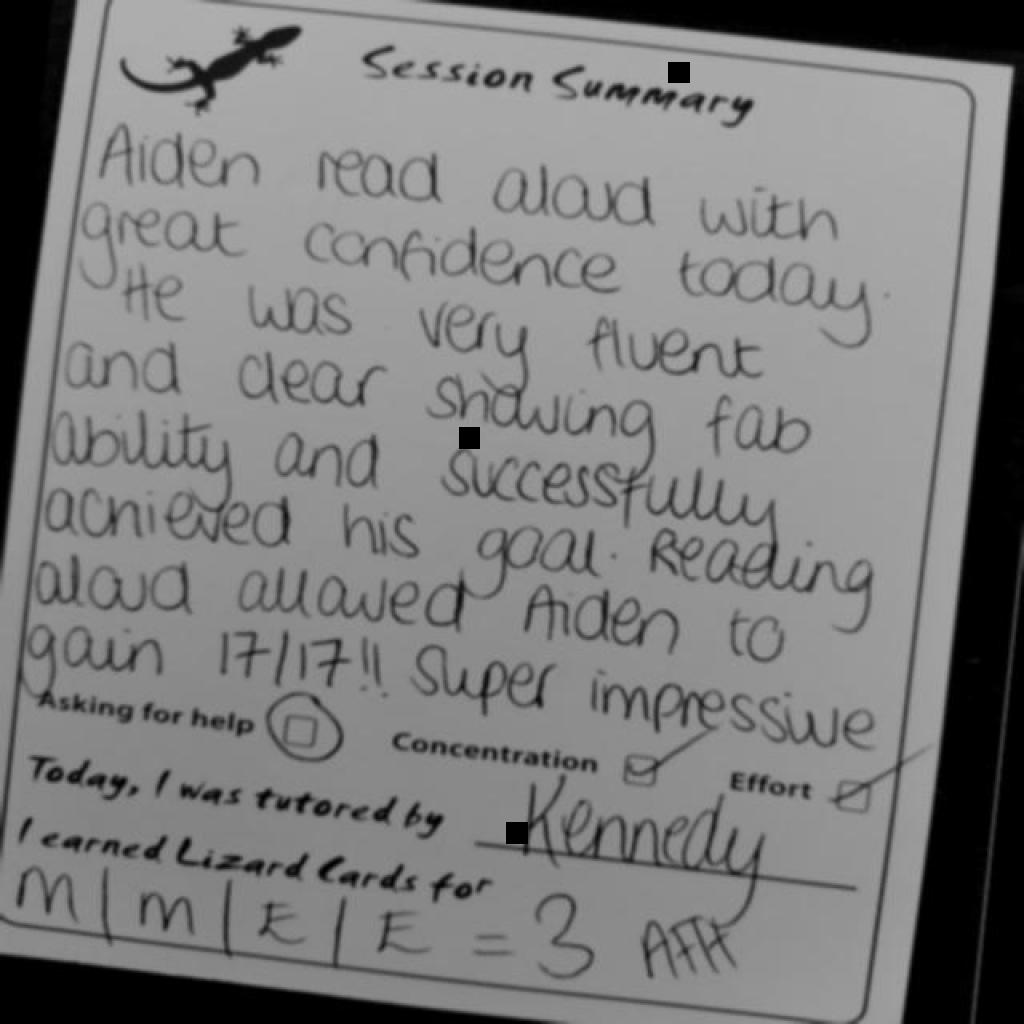 Session Summary
Aiden read aloud with
great confidence today.
He was very fluent
and clear showing fab
ability and successfully
achieved his goal. Reading
aloud allowed Aiden to
gain 17/17!! Super impressive
Asking for help Concentration Effort
Today, I was tutored by Kennedy
I earned Lizard Cards for
M | M | E | E = 3 AFH